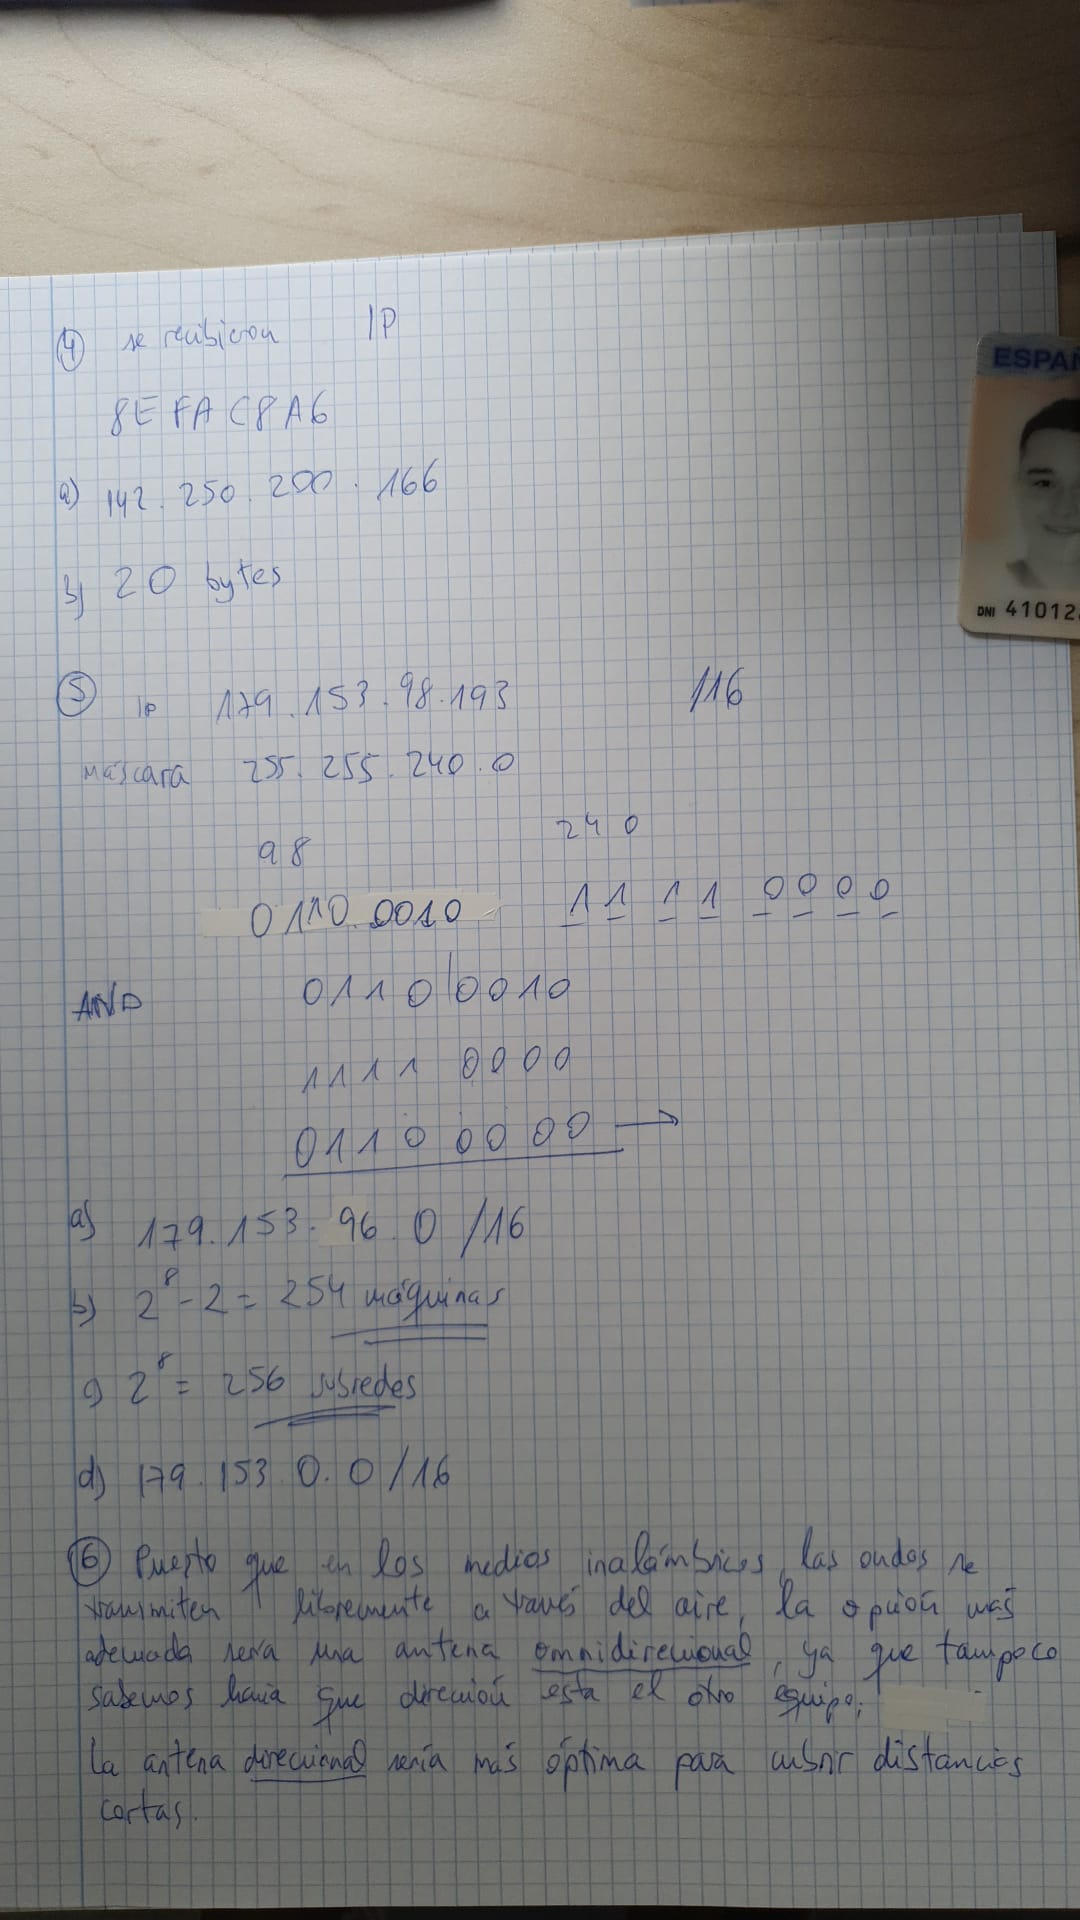 4 se recibieron IP
8E FA C8 A6
a) 142.250.200.166
b) 20 bytes
ESPAÑ
DNI 41012
5 IP 179.153.98.193 /16
máscara 255.255.240.0
98 240
0110.0010 1111 0000
AND 0110 0010
1111 0000
0110 0000 →
a) 179.153.96.0 /16
b) 2⁸ - 2 = 254 máquinas
c) 2⁸ = 256 subredes
d) 179.153.0.0/16
6 Puesto que en los medios inalámbricos, las ondas se
transmiten libremente a través del aire, la opción más
adecuada sería una antena omnidireccional, ya que tampoco
sabemos hacia que dirección esta el otro equipo;
La antena direccional sería más óptima para cubrir distancias
cortas.